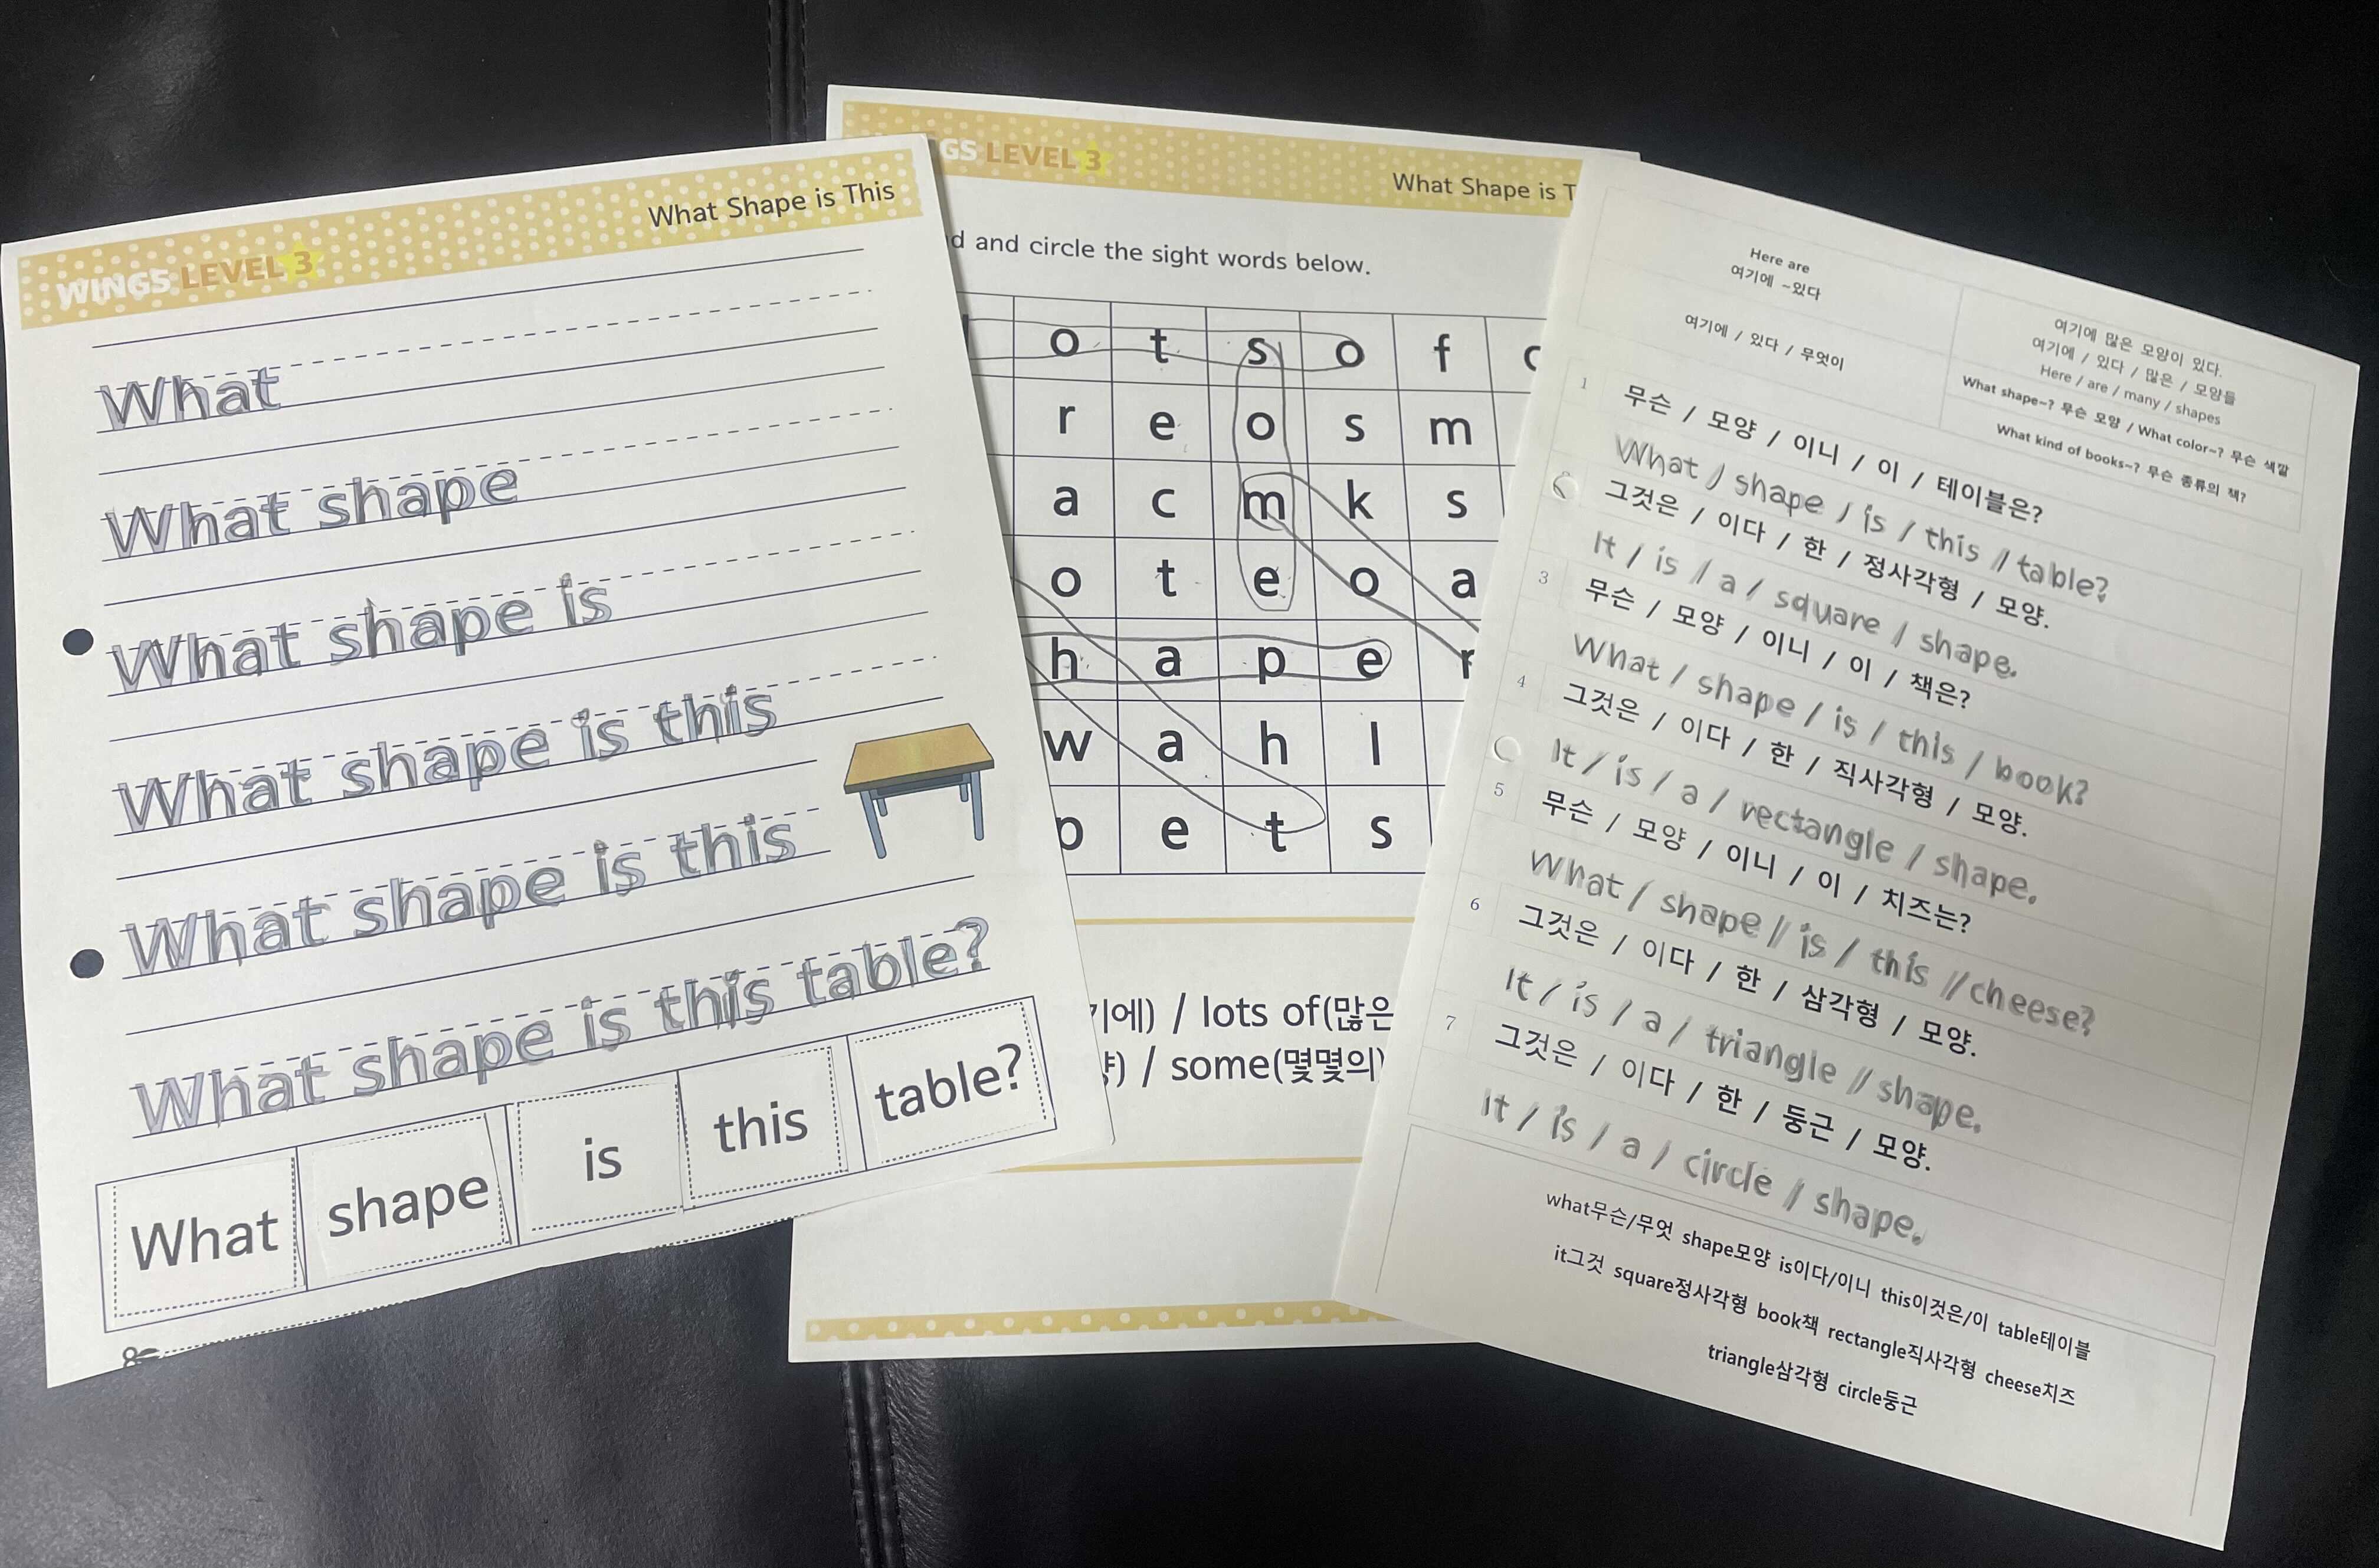 WINGS LEVEL 3
What Shape is This
What
What shape
What shape is
What shape is this
What shape is this
What shape is this table?
What shape is this table?
LEVEL 3
What Shape is
and circle the sight words below.
o t s o f
r e o s m
a c m k s
o t e o a
h a p e r
w a h l
p e t s
/ lots of(많은
/ some(몇몇의)
Here are
여기에 ~있다
여기에 / 있다 / 무엇이
여기에 많은 모양이 있다.
여기에 / 있다 / 많은 / 모양들
Here / are / many / shapes
What shape~? 무슨 모양 / What color~? 무슨 색깔
What kind of books~? 무슨 종류의 책?
1 무슨 / 모양 / 이니 / 이 / 테이블은?
What / shape / is / this / table?
그것은 / 이다 / 한 / 정사각형 / 모양.
It / is / a / square / shape.
3 무슨 / 모양 / 이니 / 이 / 책은?
What / shape / is / this / book?
4 그것은 / 이다 / 한 / 직사각형 / 모양.
It / is / a / rectangle / shape.
5 무슨 / 모양 / 이니 / 이 / 치즈는?
What / shape / is / this / cheese?
6 그것은 / 이다 / 한 / 삼각형 / 모양.
It / is / a / triangle / shape.
7 그것은 / 이다 / 한 / 둥근 / 모양.
It / is / a / circle / shape.
what무슨/무엇 shape모양 is이다/이니 this이것은/이 table테이블
it그것 square정사각형 book책 rectangle직사각형 cheese치즈
triangle삼각형 circle둥근